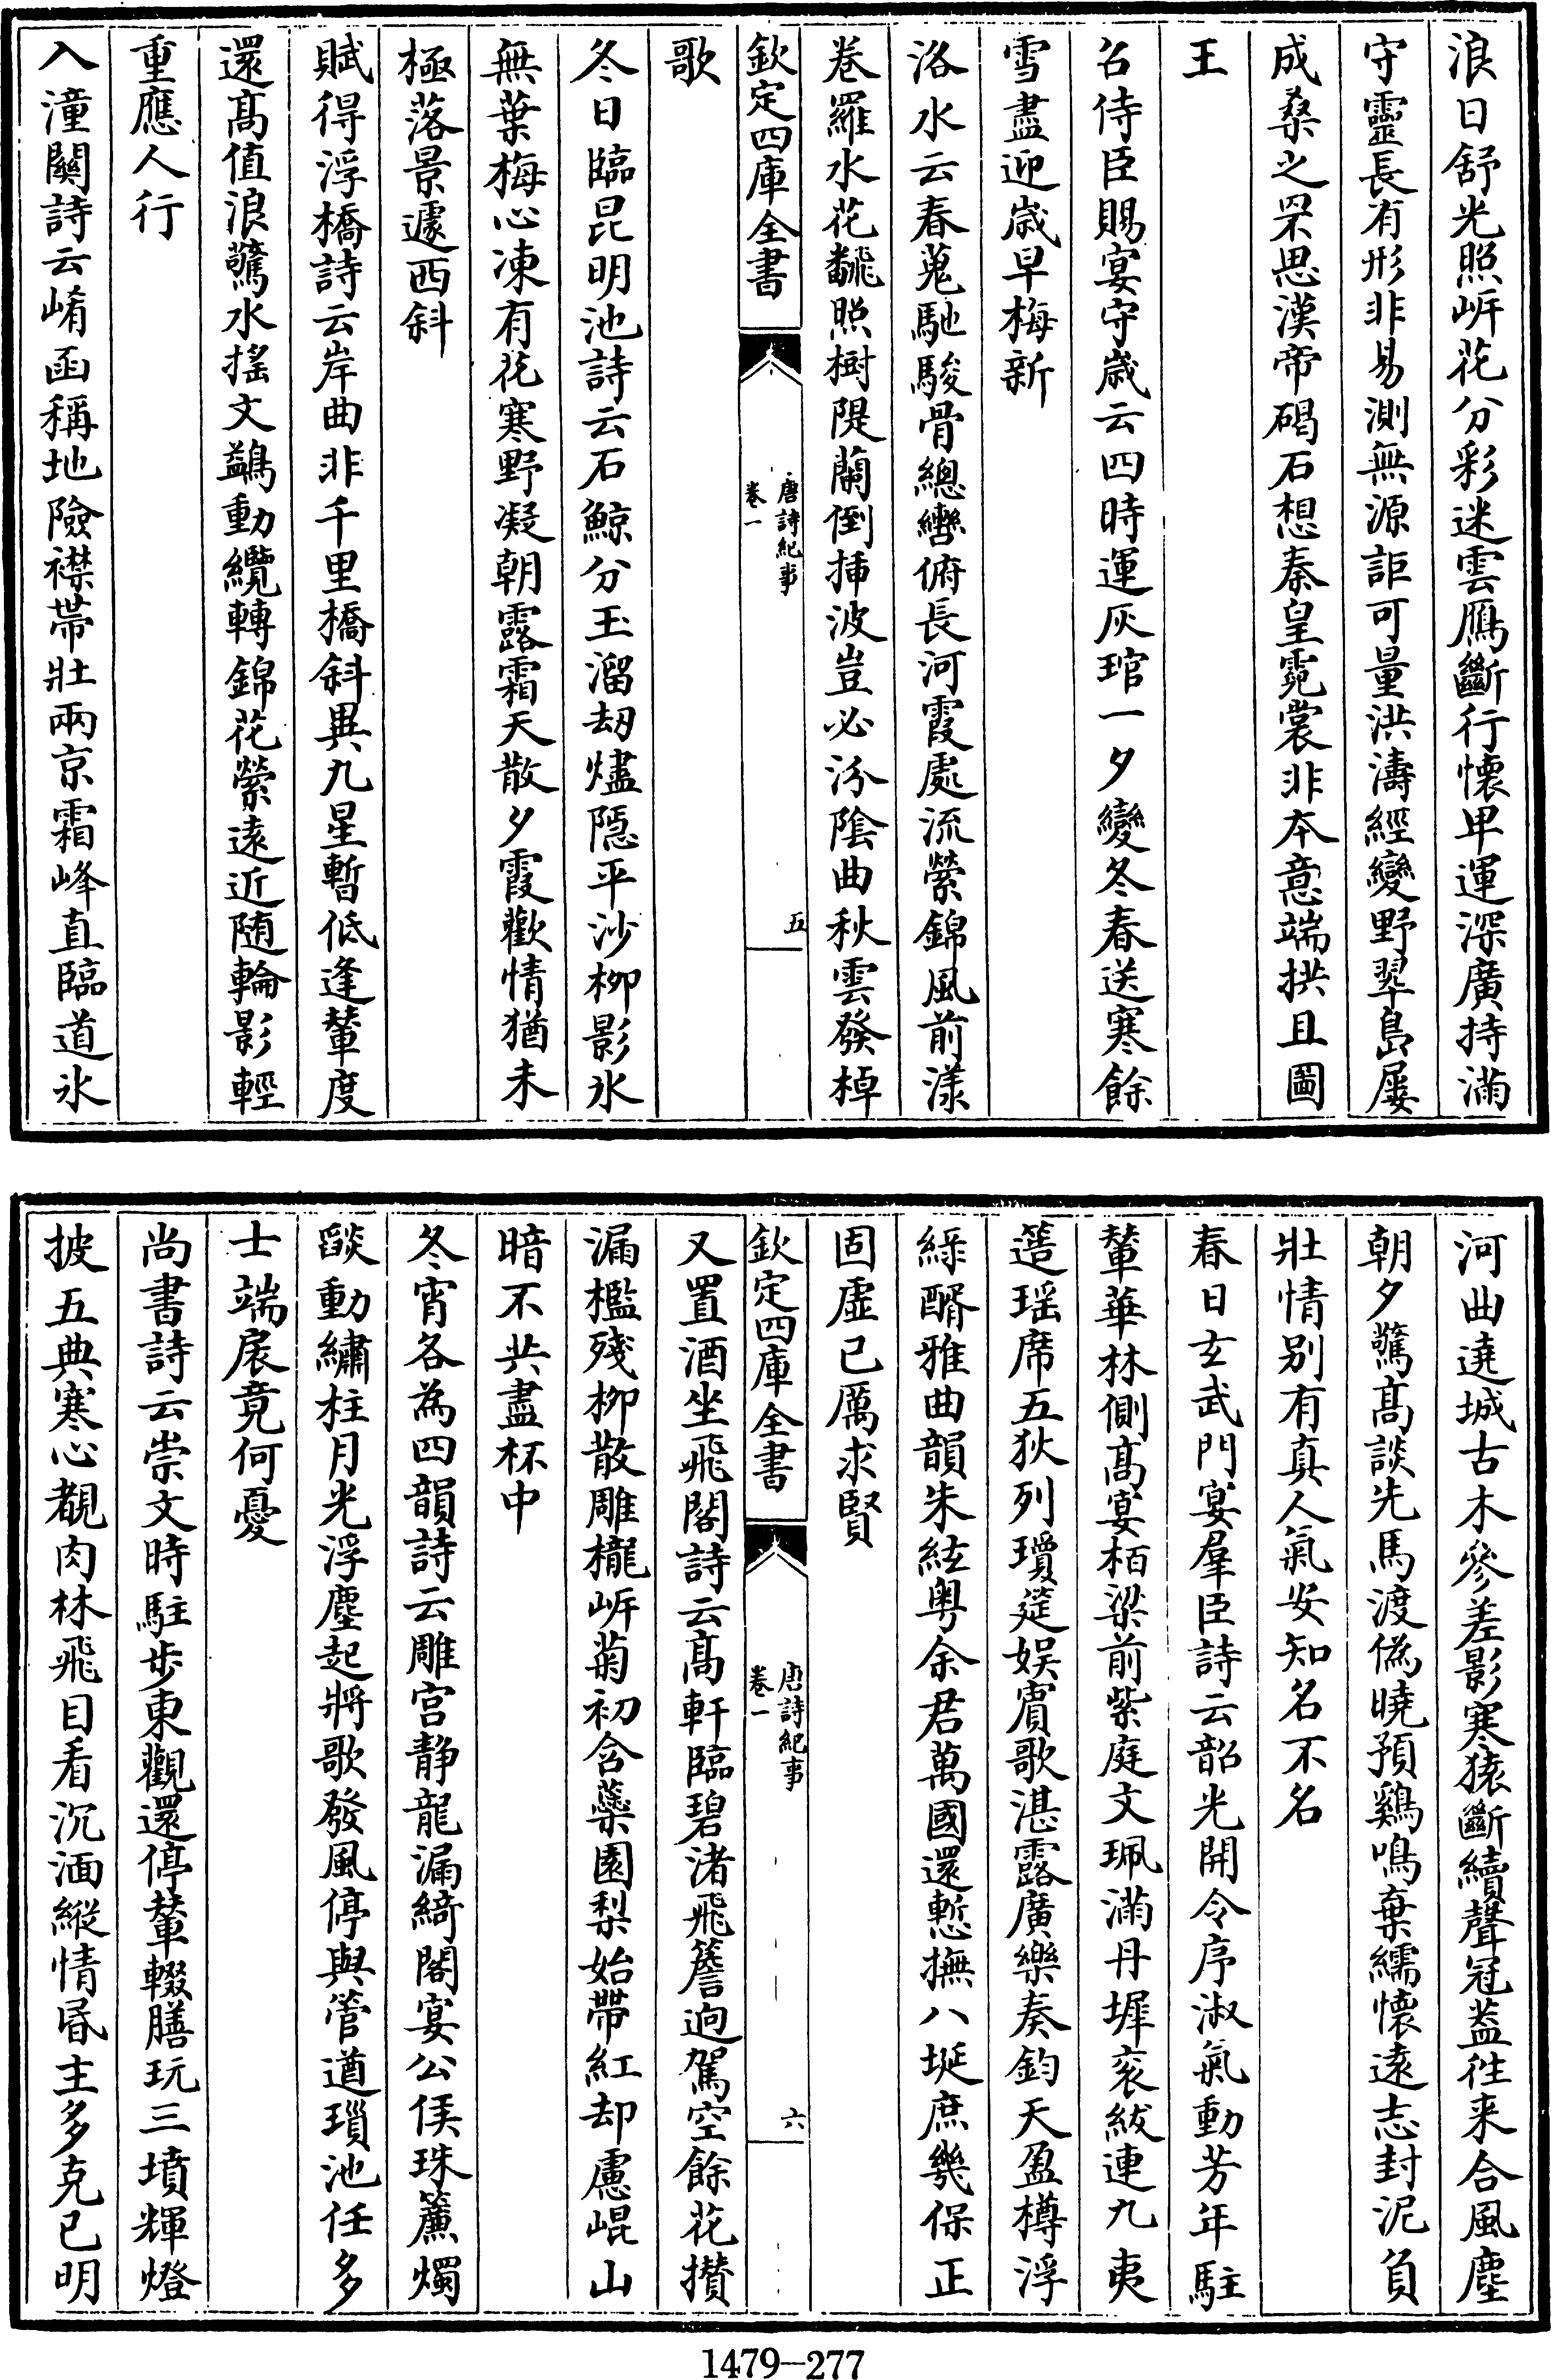 浪日舒光照㟁花分彩迷雲鴈斷行懐卑運深廣持滿
守靈長有形非易測無源詎可量洪濤經變野翠島屢
成桑之罘思漢帝碣石想秦皇霓裳非本意端拱且圖
王
召侍臣賜宴守歳云四時運灰琯一夕變冬春送寒餘
雪盡迎歳早梅新
洛水云春蒐馳駿骨總轡俯長河霞處流縈錦風前漾
巻羅水花飜照樹隄蘭倒挿波豈必汾隂曲秋雲發棹
欽定四庫全書
唐詩紀事
卷一
五
歌
冬日臨昆明池詩云石鯨分玉溜劫燼隱平沙栁影氷
無葉梅心凍有花寒野凝朝露霜天散夕霞歡情猶未
極落景遽西斜
賦得浮橋詩云岸曲非千里橋斜異九星暫低逢輦度
還髙值浪驚水搖文鷁動纜轉錦花縈逺近隨輪影輕
重應人行
入潼闗詩云崤函稱地險襟帶壯兩京霜峰直臨道氷
河曲遶城古木參差影寒猿斷續聲冠葢徃来合風塵
朝夕驚髙談先馬渡偽曉預鷄鳴棄繻懐逺志封泥負
壯情别有真人氣安知名不名
春日𤣥武門宴羣臣詩云韶光開令序淑氣動芳年駐
輦華林側髙宴栢梁前紫庭文珮滿丹墀衮紱連九夷
簉瑶席五狄列瓊筵娱賔歌湛露廣樂奏鈞天盈樽浮
綠醑雅曲韻朱絃粤余君萬國還慙撫八埏庶幾保正
固虚已厲求賢
欽定四庫全書
唐詩紀事
卷一
六
又置酒坐飛閣詩云髙軒臨碧渚飛簷逈駕空餘花攢
漏檻殘栁散雕櫳㟁菊初含蘂園梨始帶紅却慮崐山
暗不共盡杯中
冬宵各為四韻詩云雕宫静龍漏綺閣宴公侯珠簾燭
燄動繡柱月光浮塵起將歌發風停與管遒瑣池任多
士端扆竟何憂
尚書詩云崇文時駐步東觀還停輦輟膳玩三墳輝燈
披五典寒心覩肉林飛目看沉湎縱情昏主多克已明
1479—277